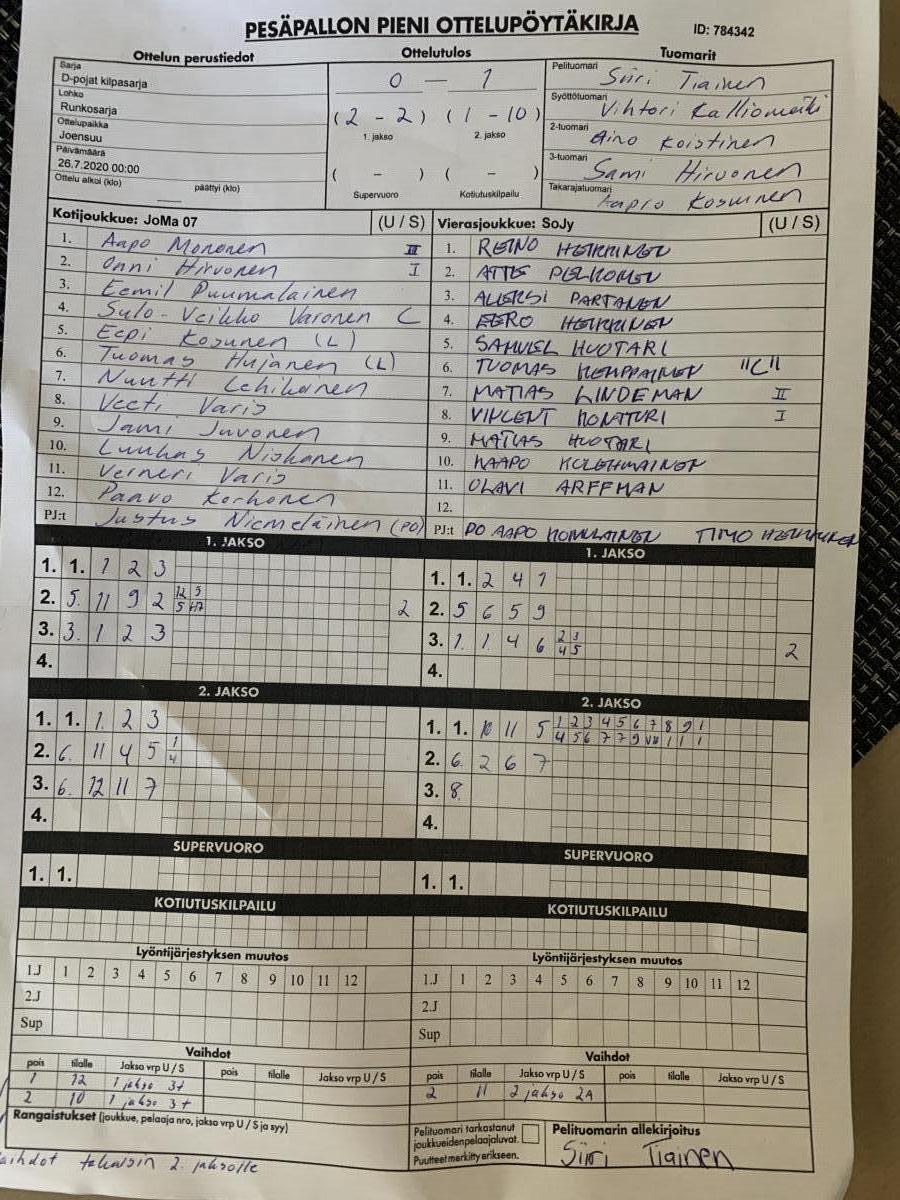 PESÄPALLON PIENI OTTELUPÖYTÄKIRJA
ID: 784342
Ottelun perustiedot
Sarja
D-pojat kilpasarja
Lohko
Runkosarja
Ottelupaikka
Joensuu
Päivämäärä
26.7.2020 00:00
Ottelu alkoi (klo) päättyi (klo)
Ottelutulos
0 — 1
(2 - 2) (1 - 10)
1. jakso 2. jakso
( - ) ( - )
Supervuoro Kotiutuskilpailu
Tuomarit
Pelituomari Siiri Tiainen
Syöttötuomari Vihtori Kalliomäki
2-tuomari Aino Koistinen
3-tuomari Sami Hirvonen
Takarajatuomari Kosunen
Kotijoukkue: JoMa 07 (U / S)
1. Aapo Mononen II
2. Onni Hirvonen I
3. Eemil Puumalainen
4. Sulo-Veikko Varonen C
5. Eepi Kosunen (L)
6. Tuomas Hujanen (L)
7. Nuutti Lehikoinen
8. Veeti Varis
9. Jami Juvonen
10. Luukas Niskanen
11. Verneri Varis
12. Paavo Korhonen
PJ:t Justus Niemeläinen (PO)
Vierasjoukkue: SoJy (U / S)
1. REINO HEIKKINEN
2. PELKONEN
3. ALEKSI PARTANEN
4. EERO HEIKKINEN
5. SAMUEL HUOTARI
6. TUOMAS KEMPPAINEN "C"
7. MATIAS LINDEMAN II
8. VINCENT I
9. MATIAS HUOTARI
10. KAAPO KOLEHMAINEN
11. OLAVI ARFFMAN
12.
PJ:t PO AAPO TIMO HEIKKINEN
1. JAKSO
1. 1. 1 2 3
2. 5. 11 9 2 12 5 2
5
3. 3. 1 2 3
4.
1. JAKSO
1. 1. 2 4 7
2. 5 6 5 9
3. 1. 1 4 6 2 3 2
4 5
4.
2. JAKSO
1. 1. 1. 2 3
2. 6. 11 4 5 1
4
3. 6. 12 11 7
4.
2. JAKSO
1. 1. 10 11 5 1 2 3 4 5 6 7 8 9 1
4 5 6 7 7 9 1 1 1
2. 6. 2 6 7
3. 8.
4.
SUPERVUORO
1. 1.
SUPERVUORO
1. 1.
KOTIUTUSKILPAILU
KOTIUTUSKILPAILU
Lyöntijärjestyksen muutos
1.J 1 2 3 4 5 6 7 8 9 10 11 12
2.J
Sup
Lyöntijärjestyksen muutos
1.J 1 2 3 4 5 6 7 8 9 10 11 12
2.J
Sup
Vaihdot
pois tilalle Jakso vrp U / S pois tilalle Jakso vrp U / S
1 12 1 jakso 3+
2 10 1 jakso 3+
Vaihdot
pois tilalle Jakso vrp U / S pois tilalle Jakso vrp U / S
2 11 2 jakso 2A
Rangaistukset (joukkue, pelaaja nro, jakso vrp U / S ja syy)
takaisin 2. jaksolle
Pelituomari tarkastanut
joukkueiden pelaajaluvat.
Puutteet merkitty erikseen.
Pelituomarin allekirjoitus
Siiri Tiainen